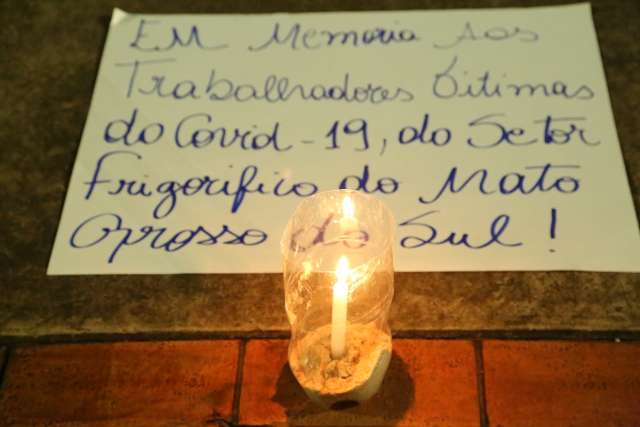 EM Memoria Aos
Trabalhadores Vitimas
do Covid-19, do Setor
Frigorifico do Mato
Grosso do Sul!